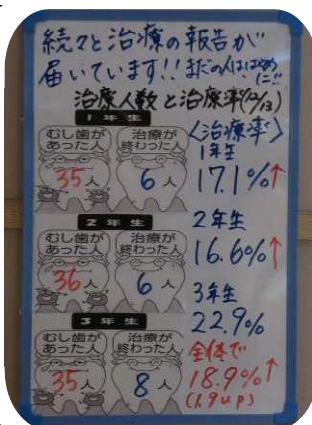 続々と治療の報告が
届いています!!まだの人ははやめに!!
治療人数と治療率(12/13)
1年生
むし歯があった人
35人
治療が終わった人
6人
2年生
むし歯があった人
36人
治療が終わった人
6人
3年生
むし歯があった人
35人
治療が終わった人
8人
〈治療率〉
1年生
17.1%↑
2年生
16.6%↑
3年生
22.9%
全体で
18.9%↑
(1.9up)